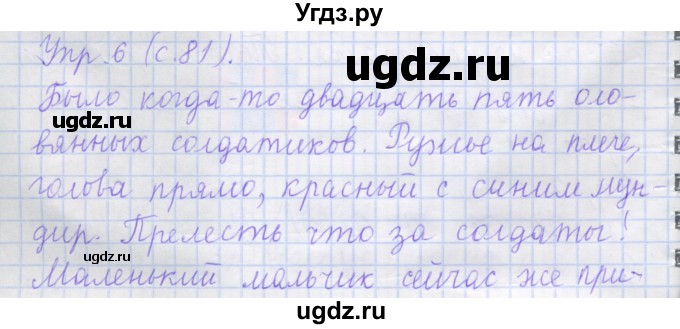 Угдз.ру
Упр.6 (с.81).
ugdz.ru
ugdz.ru
Было когда-то двадцать пять оло-
вянных солдатиков. Ружье на плече,
ugdz.ru
ugdz.ru
голова прямо, красный с синим мун-
дир. Прелесть что за солдаты!
ugdz.ru
ugdz.ru
Маленький мальчик сейчас же при-
ugdz.ru